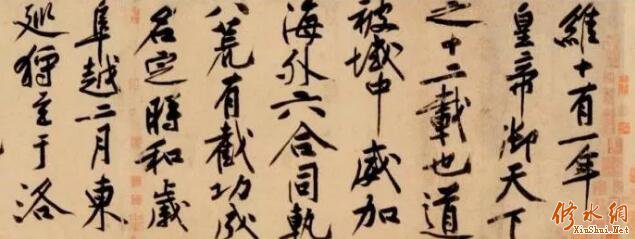 維十有一年
皇帝御天下
之十二載也道
被域中威加
海外六合同軌
八荒有截功成
名定時和歲
阜越二月東
巡狩至于洛
修水網
XiuShui.Net